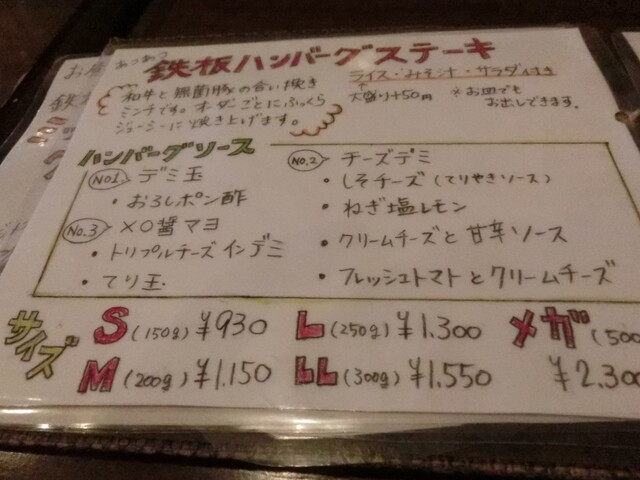 あつあつ
鉄板ハンバーグステーキ
ライス・みそ汁・サラダ付き
大盛り+50円
※お皿でも
お出しできます。
和牛と無菌豚の合い挽き
ミンチです。オーダーごとにふっくら
ジューシーに焼き上げます。
ハンバーグソース
No1. デミ玉
・おろしポン酢
No.3 XO醤マヨ
・トリプルチーズインデミ
・てり玉
No.2 チーズデミ
・しそチーズ(てりやきソース)
・ねぎ塩レモン
・クリームチーズと甘辛ソース
・フレッシュトマトとクリームチーズ
サイズ
S (150g) ¥930
L (250g) ¥1.300
メガ (500
M (200g) ¥1.150
LL (300g) ¥1.550
¥2.300